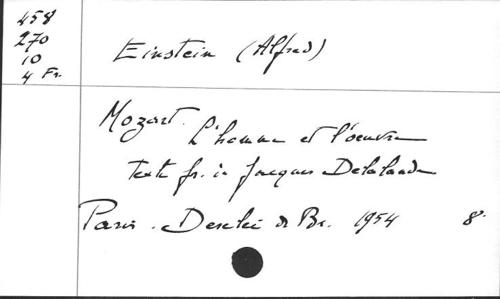 458
270
10
4 Fr.
Einstein (Alfred)
Mozart. L'homme et l'oeuvre
Texte fr. de Jacques Delalande
Paris. Desclée de Br. 1954 8°